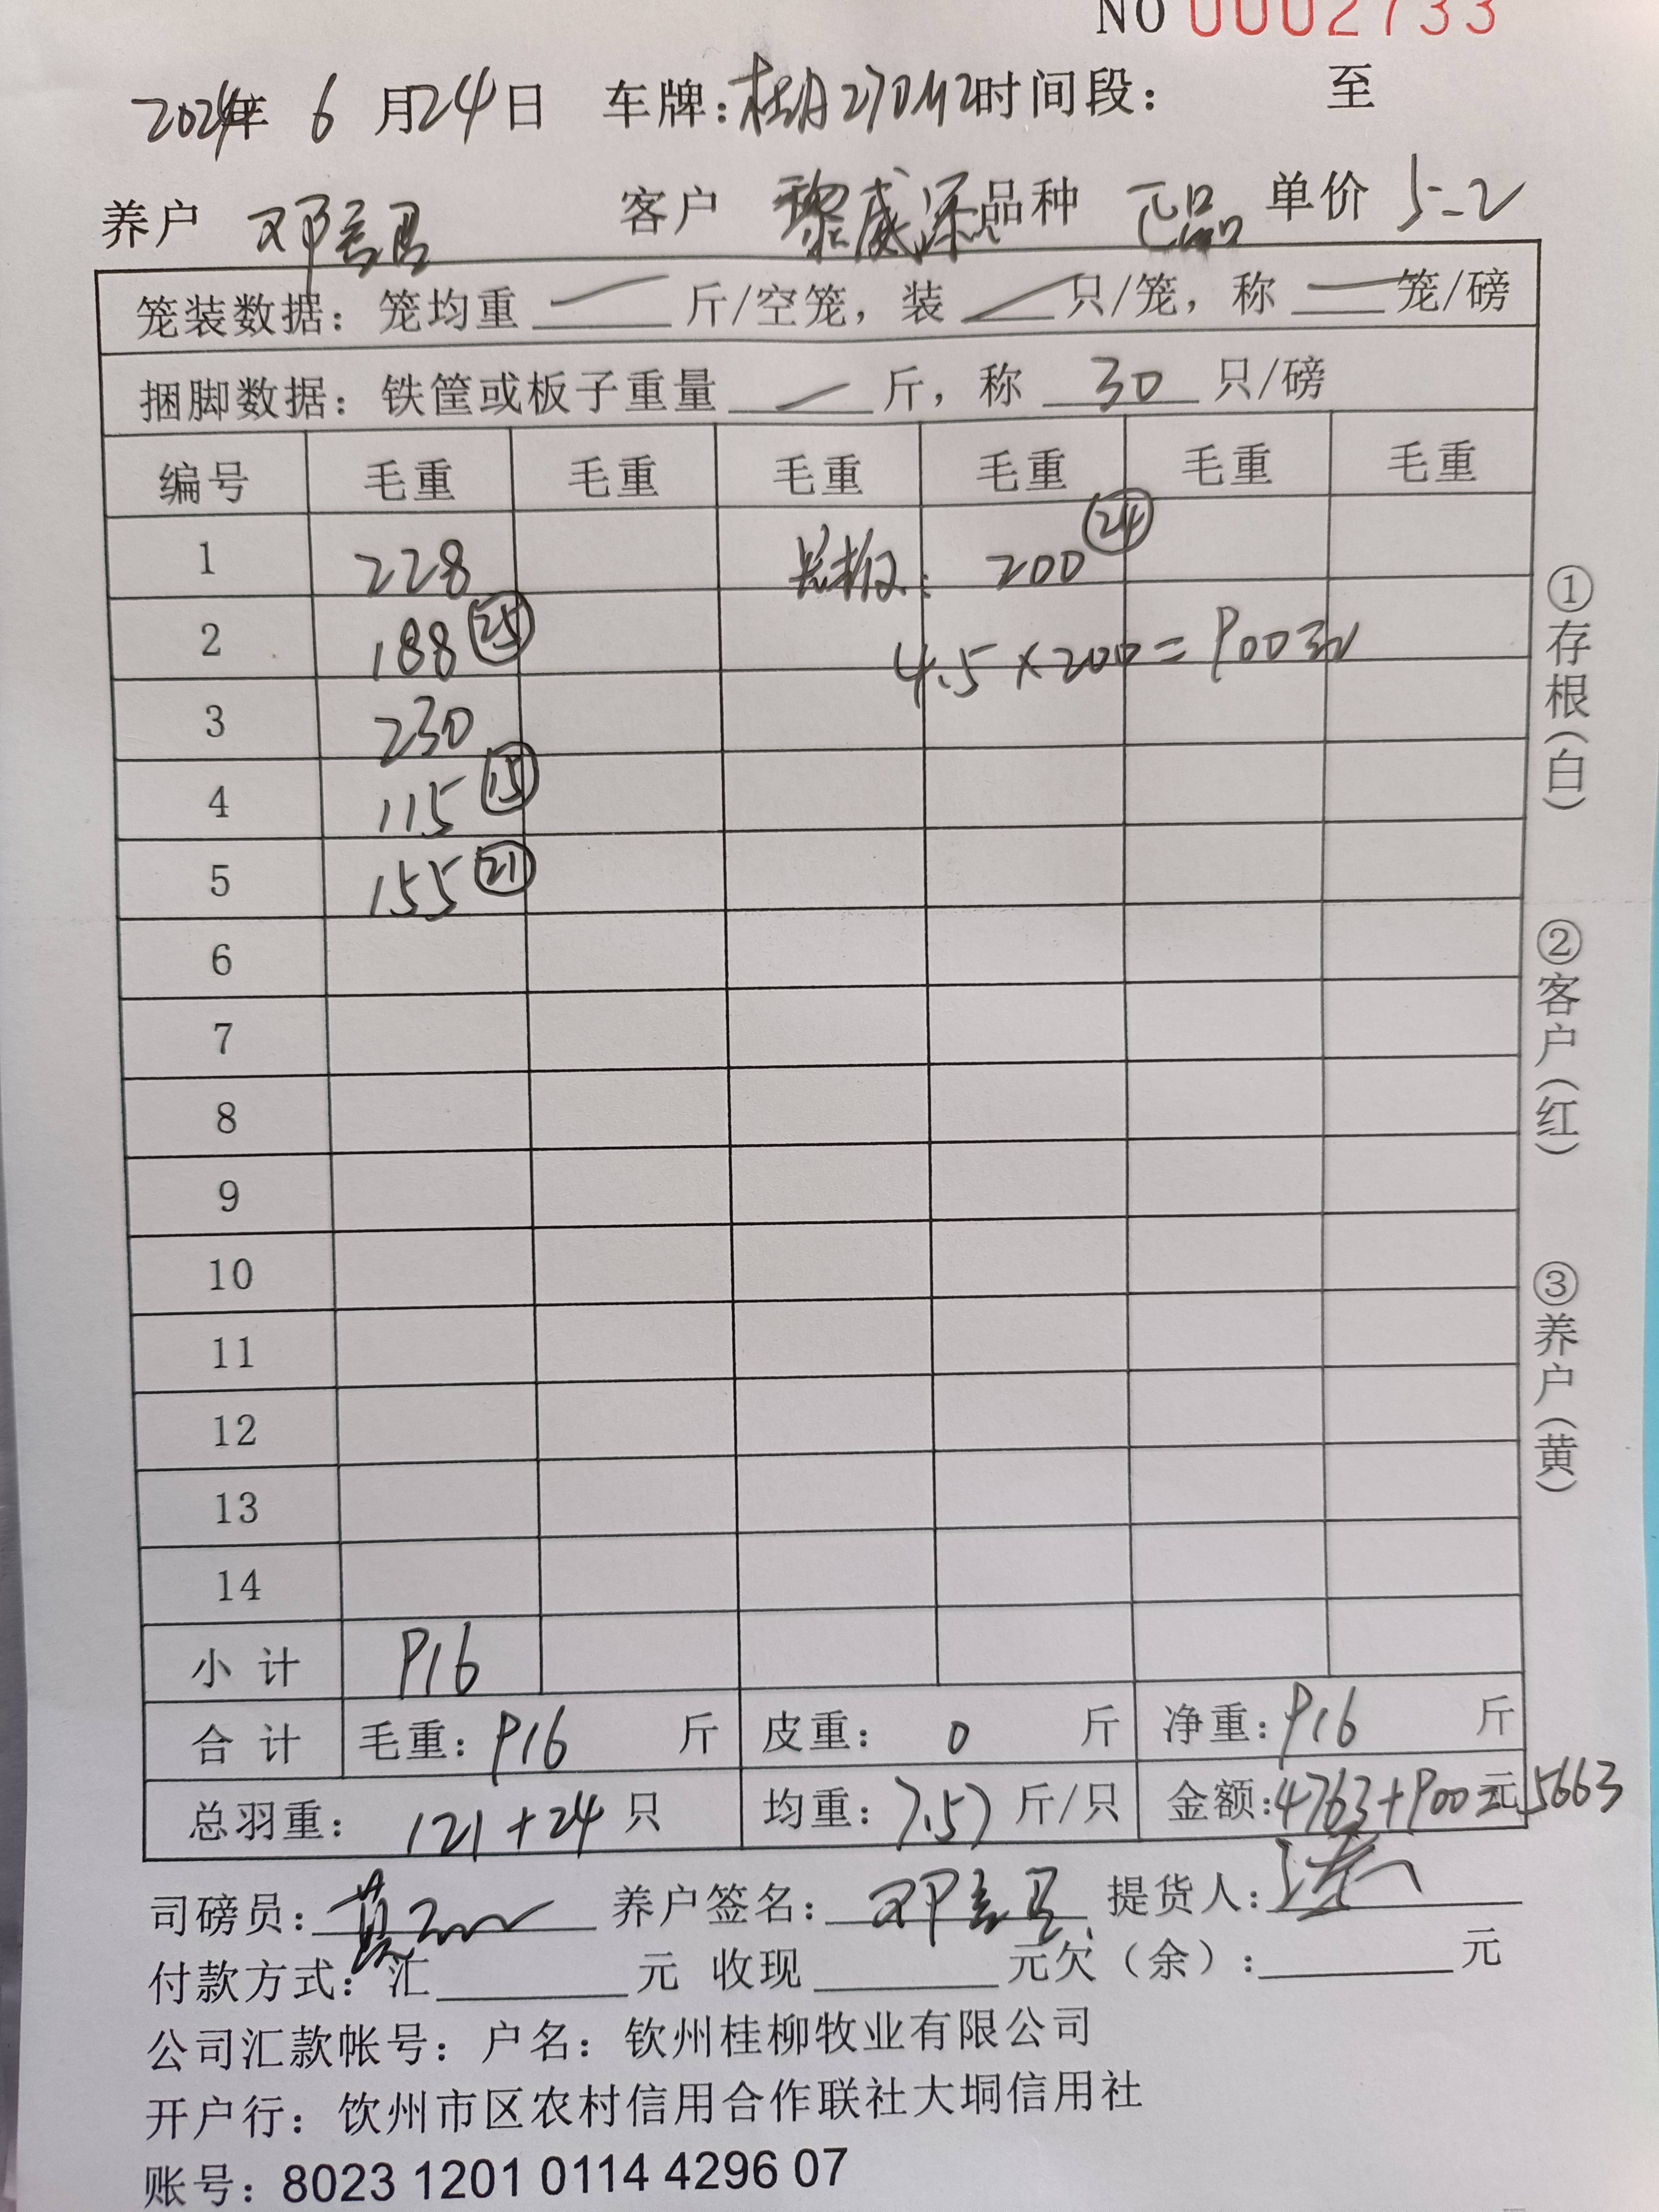 NO 0002733
2024年 6 月 24 日 车牌: 桂A270M2 时间段: 至
养户 邓 客户 黎威 品种 正品 单价 5.2
笼装数据: 笼均重 — 斤/空笼, 装 — 只/笼, 称 — 笼/磅
捆脚数据: 铁筐或板子重量 — 斤, 称 30 只/磅
编号 毛重 毛重 毛重 毛重 毛重 毛重
1 228 200 ㉔
2 188 ㉕ 4.5×200=900元
3 230
4 115 ⑮
5 155 ㉑
6
7
8
9
10
11
12
13
14
小 计 916
合 计 毛重: 916 斤 皮重: 0 斤 净重: 916 斤
总羽重: 121+24 只 均重: 7.57 斤/只 金额: 4763+900元 5663
司磅员: 养户签名: 邓 提货人:
付款方式: 汇 元 收现 元欠(余): 元
公司汇款帐号: 户名: 钦州桂柳牧业有限公司
开户行: 钦州市区农村信用合作联社大垌信用社
账号: 8023 1201 0114 4296 07
①存根(白)
②客户(红)
③养户(黄)